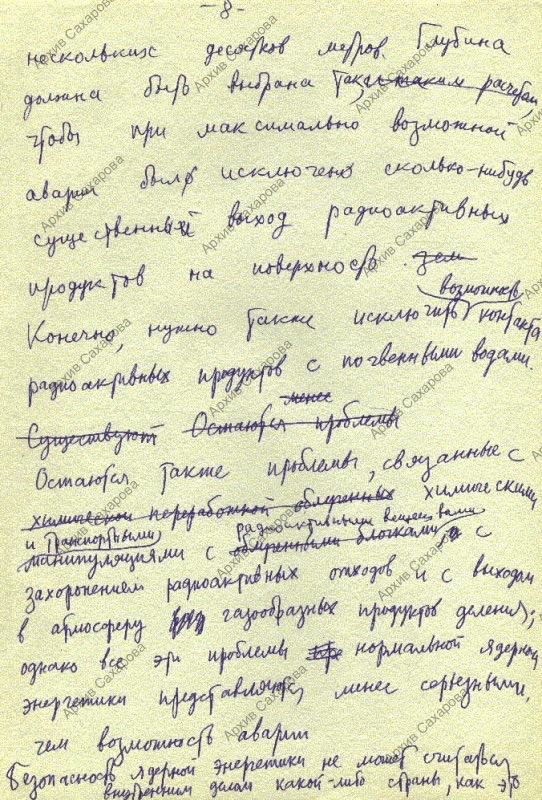 – 8 –
нескольких десятков метров. Глубина
должна быть выбрана так, с таким расчетом,
чтобы при максимально возможной
аварии был исключено сколько-нибудь
существенный выход радиоактивных
продуктов на поверхность.
возможность
Конечно, нужно также исключить контакта
радиоактивных продуктов с почвенными водами.
менее
Существуют Остаются проблемы
Остаются также проблемы, связанные с
химической переработкой облученных химическими
и транспортными радиоактивными веществами
манипуляциями с облученными блоками, с
захоронением радиоактивных отходов и с выходом
в атмосферу газообразных продуктов деления;
однако все эти проблемы нормальной ядерной
энергетики представляются менее серьезными,
чем возможность аварии
Безопасность ядерной энергетики не может считаться
внутренним делом какой-либо страны, как это
Архив Сахарова